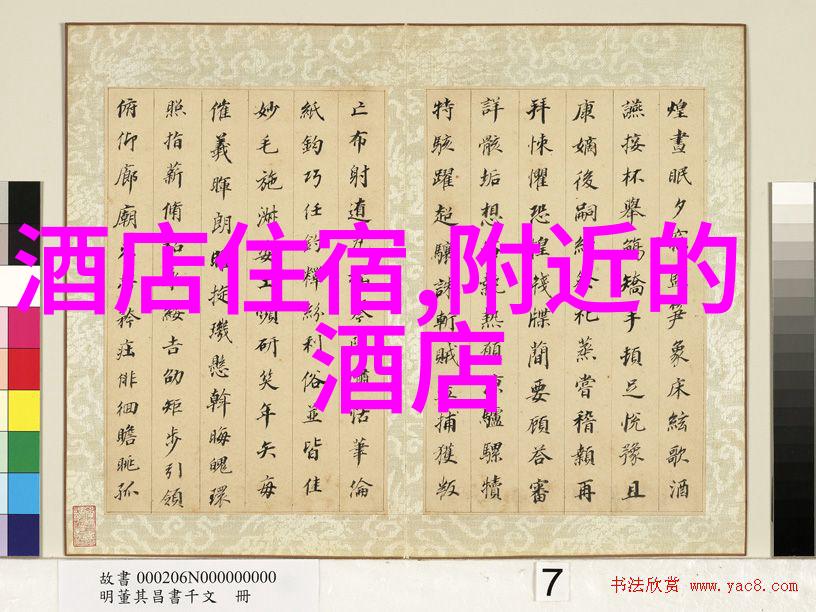 酒店住宿,附近的
酒店
煌晝眠夕笋象床絃歌酒
讌接杯舉觴矯手頓足悅豫且
康嫡後嗣祭祀蒸嘗稽顙再
拜悚懼恐惶牋牒簡要顧答審
詳骸垢想執熱願凉驢騾犢
特駭躍超驤誅斬賊捕獲叛
亡布射遼琴嘯恬筆倫
紙鈞巧任釣釋紛利俗並皆佳
妙毛施淑姿工妍笑年矢每
催羲暉朗璣懸斡晦魄環
照指薪脩綏吉劭矩步引領
俯仰廊廟矜莊徘徊瞻眺孤
故書 000206N000000000
明董其昌書千文 冊
7
书法欣赏 www.yac8.com